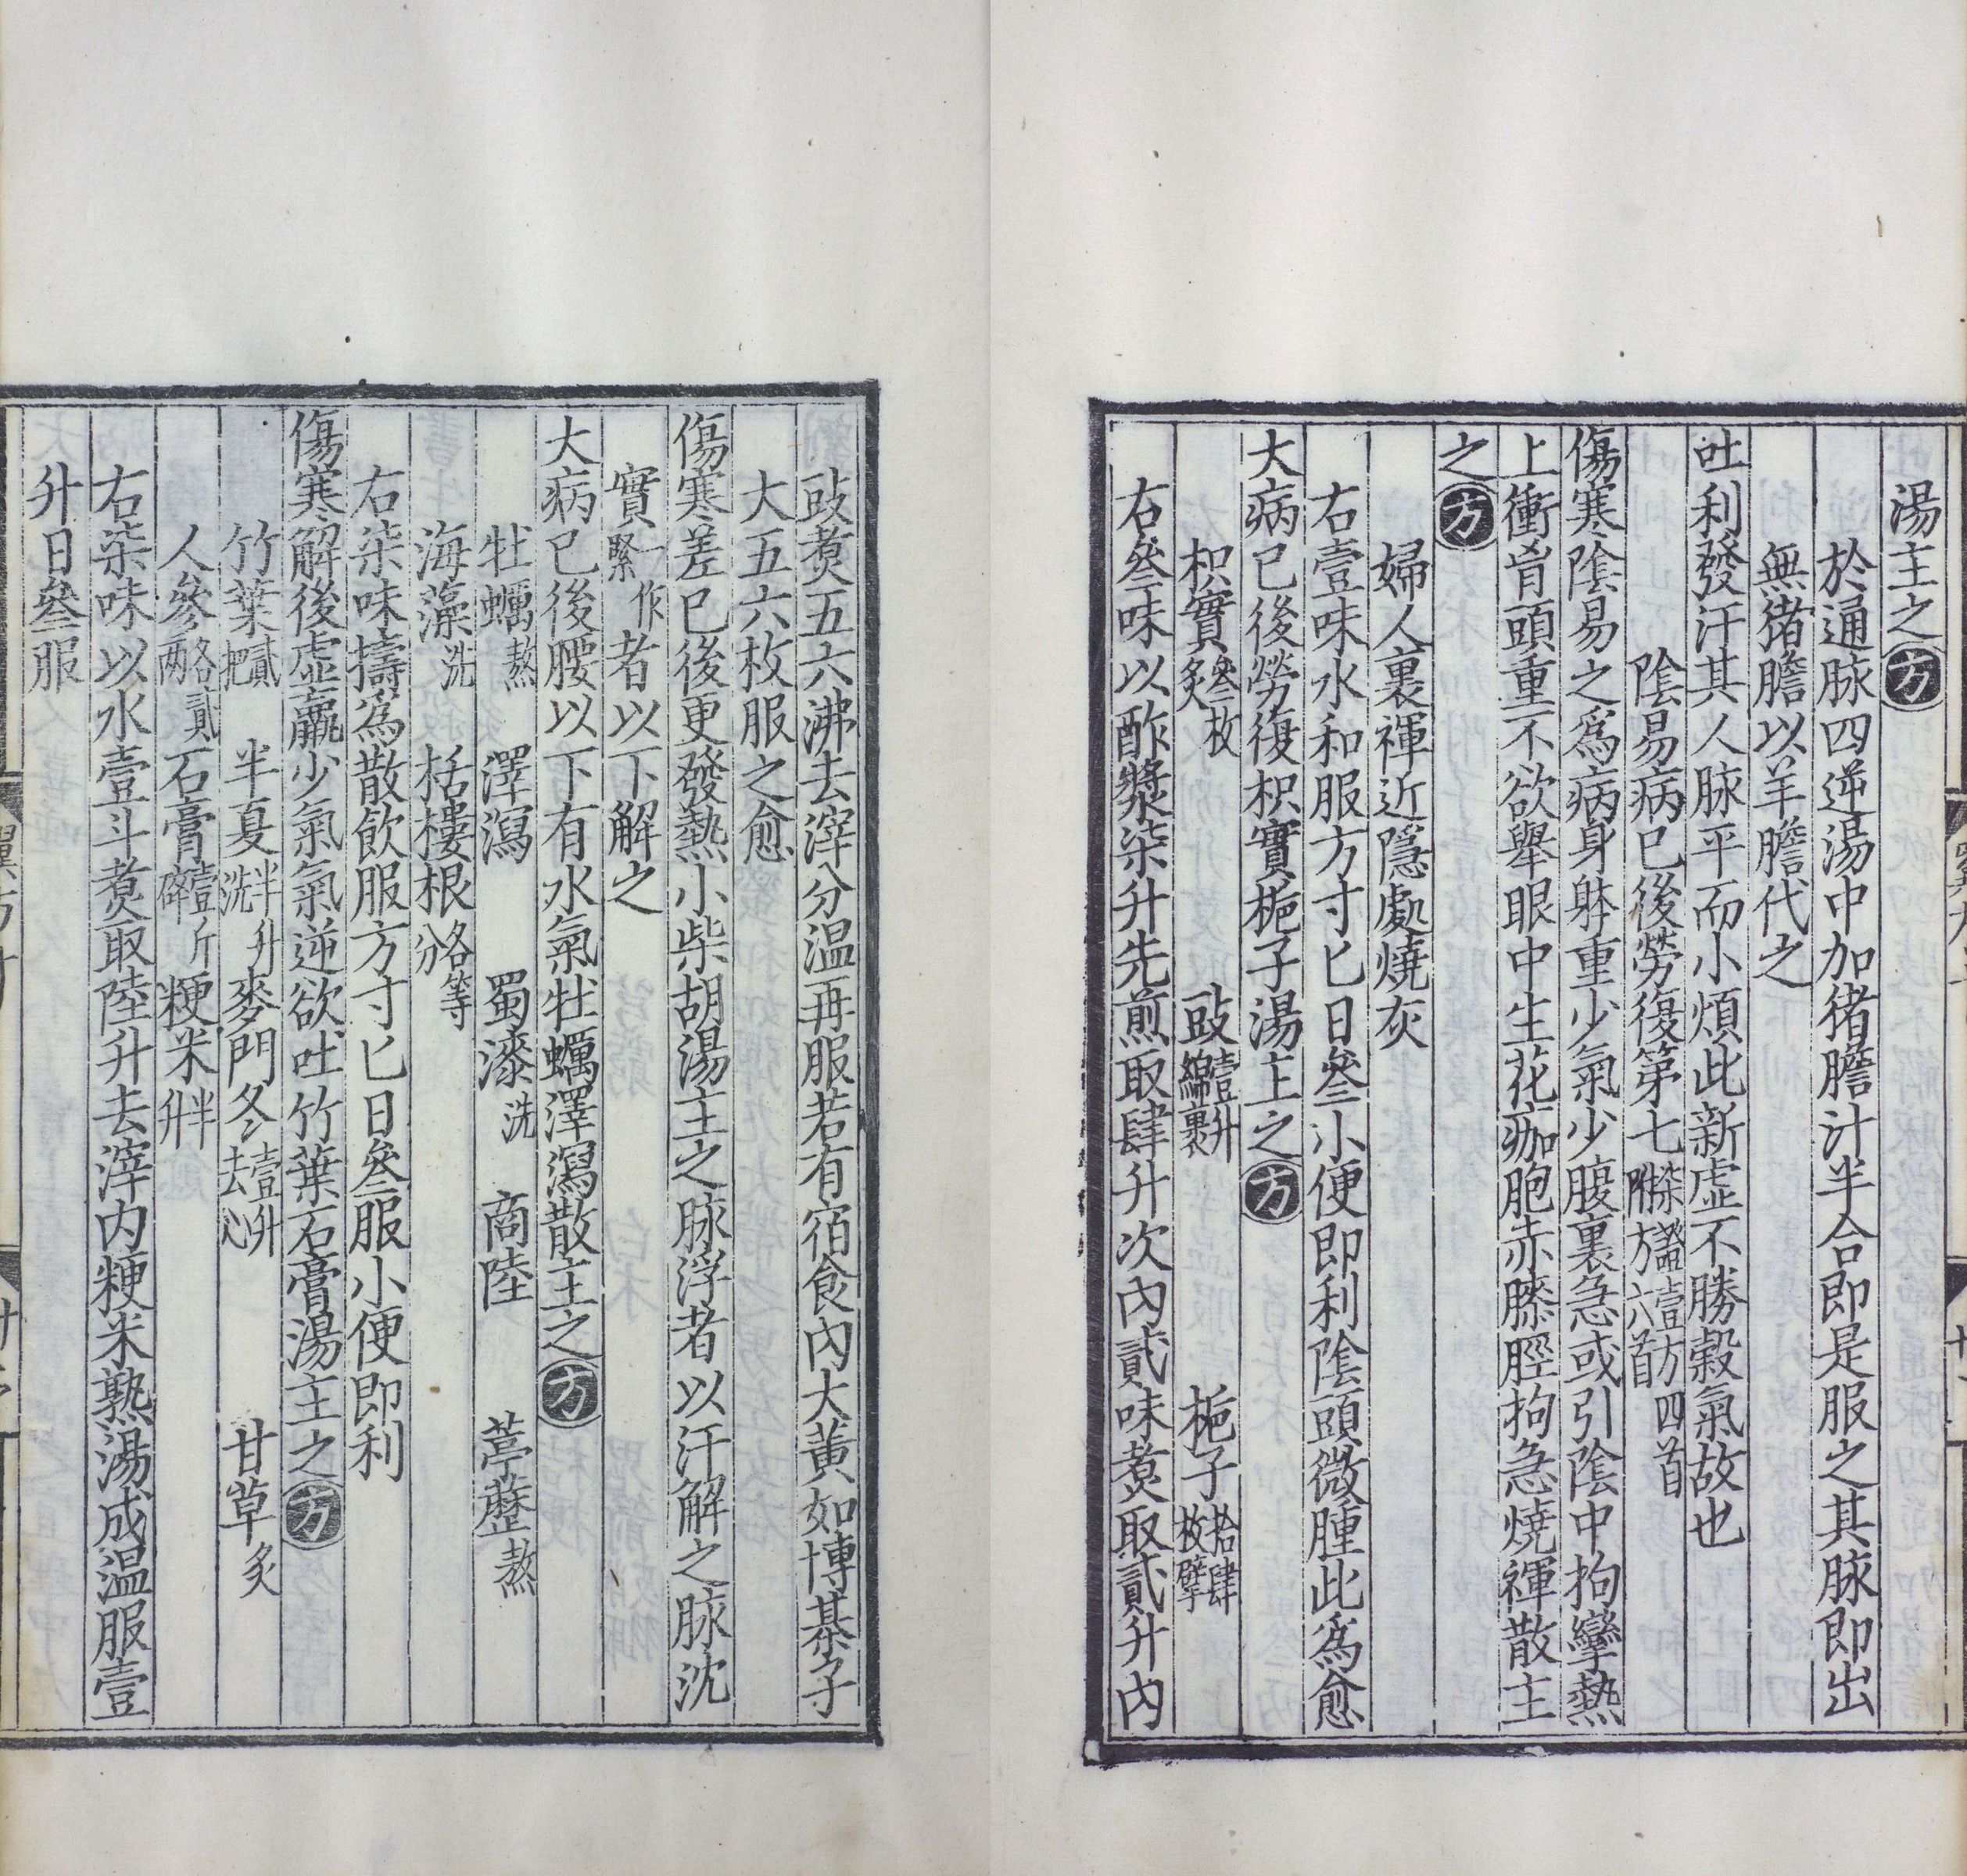 湯主之方
於通脉四逆湯中加猪膽汁半合即是服之其脉即出
無猪膽以羊膽代之
吐利發汗其人脉平而小煩此新虛不勝穀氣故也
陰易病已後勞復第七柒證壹方四首附方六首
傷寒陰易之爲病身躰重少氣少腹裏急或引陰中拘攣熱
上衝胷頭重不欲舉眼中生花痂胞赤膝脛拘急燒裈散主
之方
婦人裏裈近隱處燒灰
右壹味水和服方寸匕日叄小便即利陰頭微腫此爲愈
大病已後勞復枳實梔子湯主之方
枳實叄枚炙 豉壹升綿裹 梔子拾肆枚擘
右叄味以酢漿柒升先煎取肆升次內貳味煑取貳升內
豉煑五六沸去滓分溫再服若有宿食內大黃如博棊子
大五六枚服之愈
傷寒差已後更發熱小柴胡湯主之脉浮者以汗解之脉沈
實一作緊者以下解之
大病已後腰以下有水氣牡蠣澤瀉散主之方
牡蠣熬 澤瀉 蜀漆洗 商陸 葶藶熬
海藻洗 栝樓根各等分
右柒味擣爲散飲服方寸匕日叄服小便即利
傷寒解後虛羸少氣氣逆欲吐竹葉石膏湯主之方
竹葉貳把 半夏半升洗 麥門冬壹升去心 甘草炙
人參各貳兩 石膏壹斤碎 粳米半升
右柒味以水壹斗煑取陸升去滓內粳米熟湯成溫服壹
升日叄服